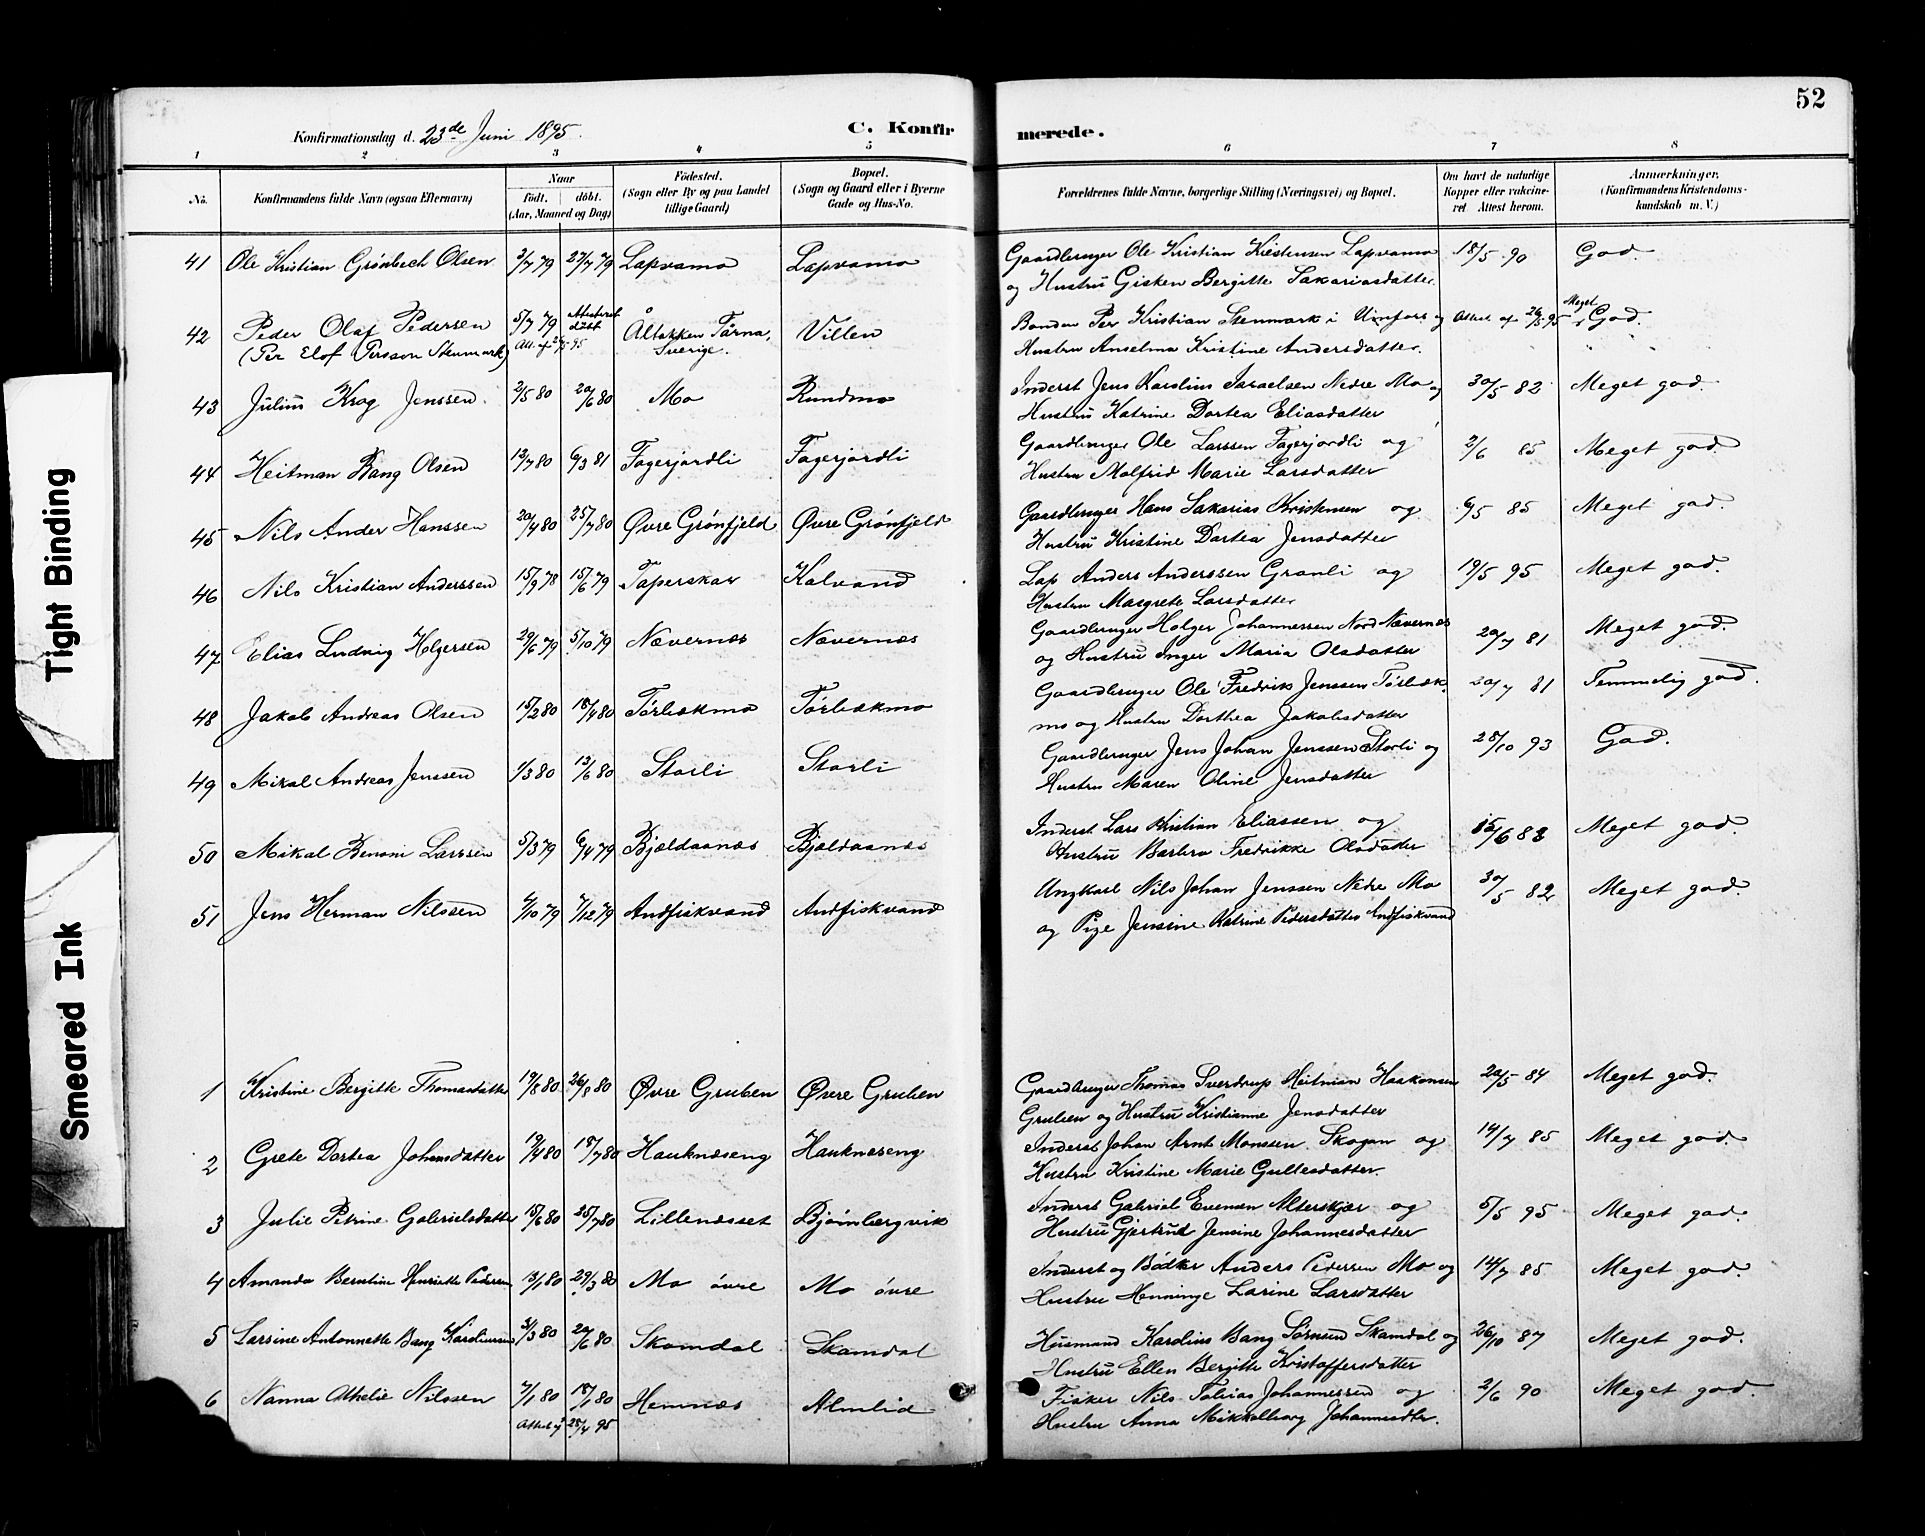 52
Konfirmationsdag d. 23de Juni 1895.
C. Konfirmerede.
1 2 3 4 5 6 7 8
No. Konfirmandens fulde Navn (ogsaa Efternavn) Naar Født. døbt. (Aar, Maaned og Dag) Fødested. (Sogn eller By og paa Landet tillige Gaard) Bopæl. (Sogn og Gaard eller i Byerne Gade og Hus-No. Forældrenes fulde Navne, borgerlige Stilling (Næringsvei) og Bopæl. Om havt de naturlige Kopper eller vakcineret Attest herom. Anmærkninger. (Konfirmandens Kristendomskundskab m. V.)
41 Ole Kristian Grønbech Olsen 2/7 79 27/7 79 Lapvamo Lapvamo Gaardbruger Ole Kristian Kristensen Lapvamo 18/5 90 God.
og Hustru Gisken Bergitte Sakariasdatter.
42 Peder Olaf Pedersen 5/7 79 Attesteret døbt Åltokken Tårna, Villen Bonden Per Kristian Stenmark i Umfors og Attest af 26/5 95 Meget God.
(Per Elof Persson Stenmark) Att. af 26/5 95 Sverige. Hustru Anselma Kristine Andersdatter.
43 Julius Krog Jenssen. 2/5 80 20/6 80 Mo Rundmo Inderst Jens Karolius Israelsen Nedre Mo og 30/5 82 Meget god.
Hustru Katrine Dortea Eliasdatter
44 Heitman Bang Olsen 12/7 80 6/3 81 Fagerjordli Fagerjordli Gaardbruger Ole Larssen Fagerjordli og 2/6 85 Meget god.
Hustru Malfrid Marie Larsdatter
45 Nils Ander Hanssen 20/4 80 25/7 80 Øvre Grønfjeld Øvre Grønfjeld Gaardbruger Hans Sakarias Kristensen og 6/5 85 Meget god.
Hustru Kristine Dortea Jensdatter
46 Nils Kristian Anderssen 15/9 78 15/6 79 Taperskar Kalvand Lap Anders Anderssen Granli og 19/5 95 Meget god.
Hustru Margrete Larsdatter
47 Elias Ludvig Helgersen 29/6 79 5/10 79 Nævernæs Nævernæs Gaardbruger Holger Johannessen Nord Nævernæs 20/7 81 Meget god.
og Hustru Inger Maria Olsdatter
48 Jakob Andreas Olsen 15/2 80 18/4 80 Tørbækmo Tørbækmo Gaardbruger Ole Fredrik Jenssen Tørbæk 20/7 81 Temmelig god.
mo og Hustru Dorthea Jakobsdatter
49 Mikal Andreas Jenssen 1/3 80 13/6 80 Storli Storli Gaardbruger Jens Johan Jenssen Storli og 28/10 93 God.
Hustru Maren Oline Jensdatter
50 Mikal Benoni Larssen 5/3 79 6/4 79 Bjældaanæs Bjældaanæs Inderst Lars Kristian Eliassen og 15/6 83 Meget god.
Hustru Barbro Fredrikke Olsdatter
51 Jens Herman Nilssen 4/10 79 7/12 79 Andfiskvand Andfiskvand Ungkarl Nils Johan Jenssen Nedre Mo 30/5 82 Meget god.
og Pige Jensine Katrine Pedersdatter Andfiskvand
1 Kristine Bergitte Thomasdatter 19/8 80 26/8 80 Øvre Gruben Øvre Gruben Gaardbruger Thomas Sverdrup Heitman Haakonsen 20/5 84 Meget god.
Gruben og Hustru Kristianne Jensdatter
2 Grete Dortea Johansdatter 19/4 80 18/7 80 Hauknæseng Hauknæseng Inderst Johan Arnt Monssen Skogan og 14/7 85 Meget god.
Hustru Kristine Marie Gullesdatter.
3 Julie Petrine Gabrielsdatter 15/6 80 25/7 80 Lillenæsset Bjørnbærgvik Inderst Gabriel Evensen Alterskjær og 5/5 95 Meget god.
Hustru Gjertrud Jensine Johannesdatter
4 Amanda Berntine Henriette Pedersen 13/1 80 29/3 80 Mo øvre Mo øvre Inderst og Bødker Anders Pedersen Mo og 14/7 85 Meget god.
Hustru Henninge Larine Larsdatter
5 Larsine Antonnette Bang Karoliussen 31/3 80 20/6 80 Skamdal Skamdal Husmand Karolius Bang Sørnsen Skamdal og 26/10 87 Meget god.
Hustru Ellen Bergitte Kristoffersdatter
6 Nanna Athelie Nilssen 7/1 80 18/1 80 Hemnæs Almlid Fisker Nils Tobias Johannessen og 2/6 90 Meget god.
Attest af 28/4 95 Hustru Anna Mikkelborg Johannesdtr.
Tight Binding
Smeared Ink